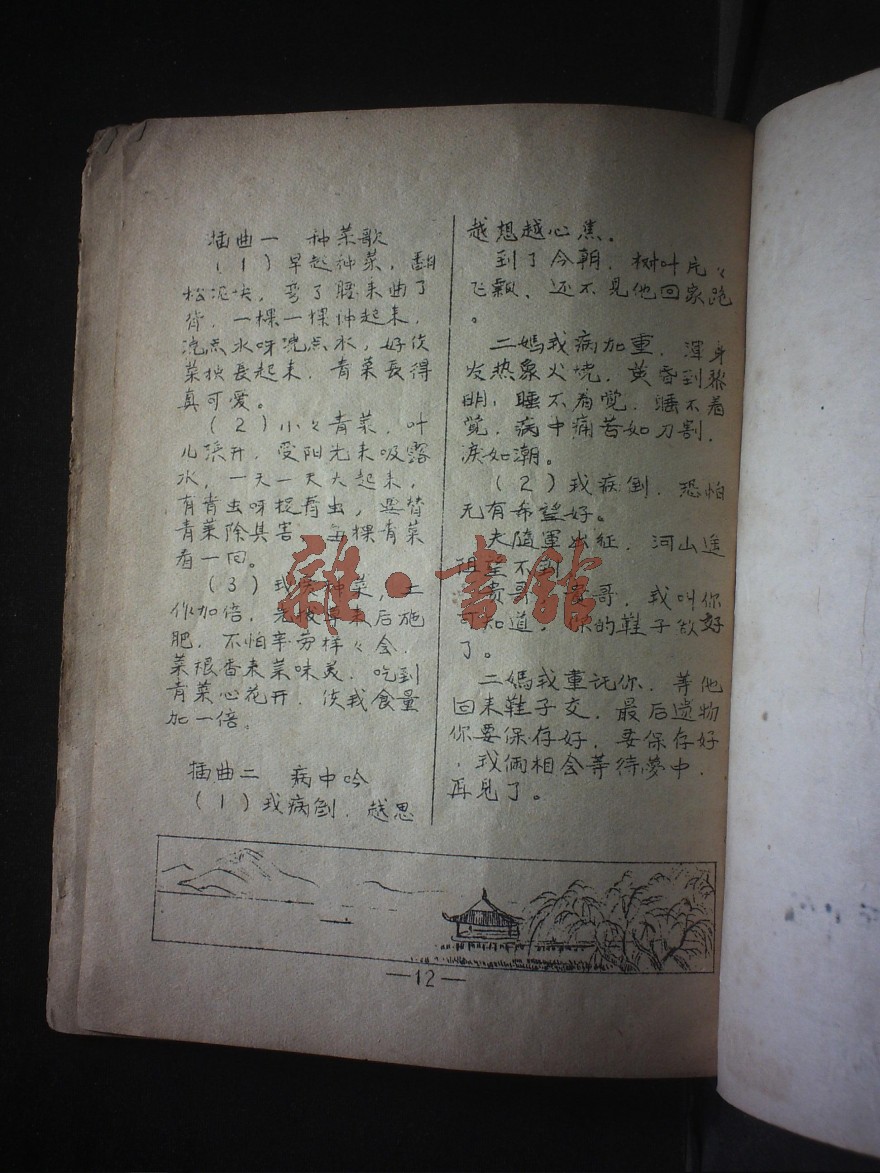 插曲一 种菜歌
(1)早起种菜,翻
松泥块,弯了腰来曲了
背,一棵一棵种起来,
浇点水呀浇点水,好使
菜秧長起来,青菜長得
真可爱。
(2)小々青菜,叶
儿溪开,受阳光来吸露
水,一天一天大起来,
有青虫呀捉青虫,要替
青菜除其害,五棵青菜
看一回。
(3)我俩种菜,工
作加倍,先拔草来后施
肥,不怕辛劳样々会,
菜根香来菜味美,吃到
青菜心花开,使我食量
加一倍。
插曲二 病中吟
(1)我病倒,越思
越想越心焦。
到了今朝,树叶片々
飞飘、还不见他回家跑
。
二媽我病加重,渾身
发热象火烧,黄昏到黎
明,睡不着觉,睡不着
觉,病中痛苦如刀割,
淚如潮。
(2)我病倒,恐怕
无有希望好。
夫随軍出征,河山遥
阻望不到
贵哥,贵哥,我叫你
可知道,你的鞋子做好
了。
二媽我重託你,等他
回来鞋子交,最后遗物
你要保存好,要保存好
,我俩相会等待夢中,
再見了。
—12—
雜·書館